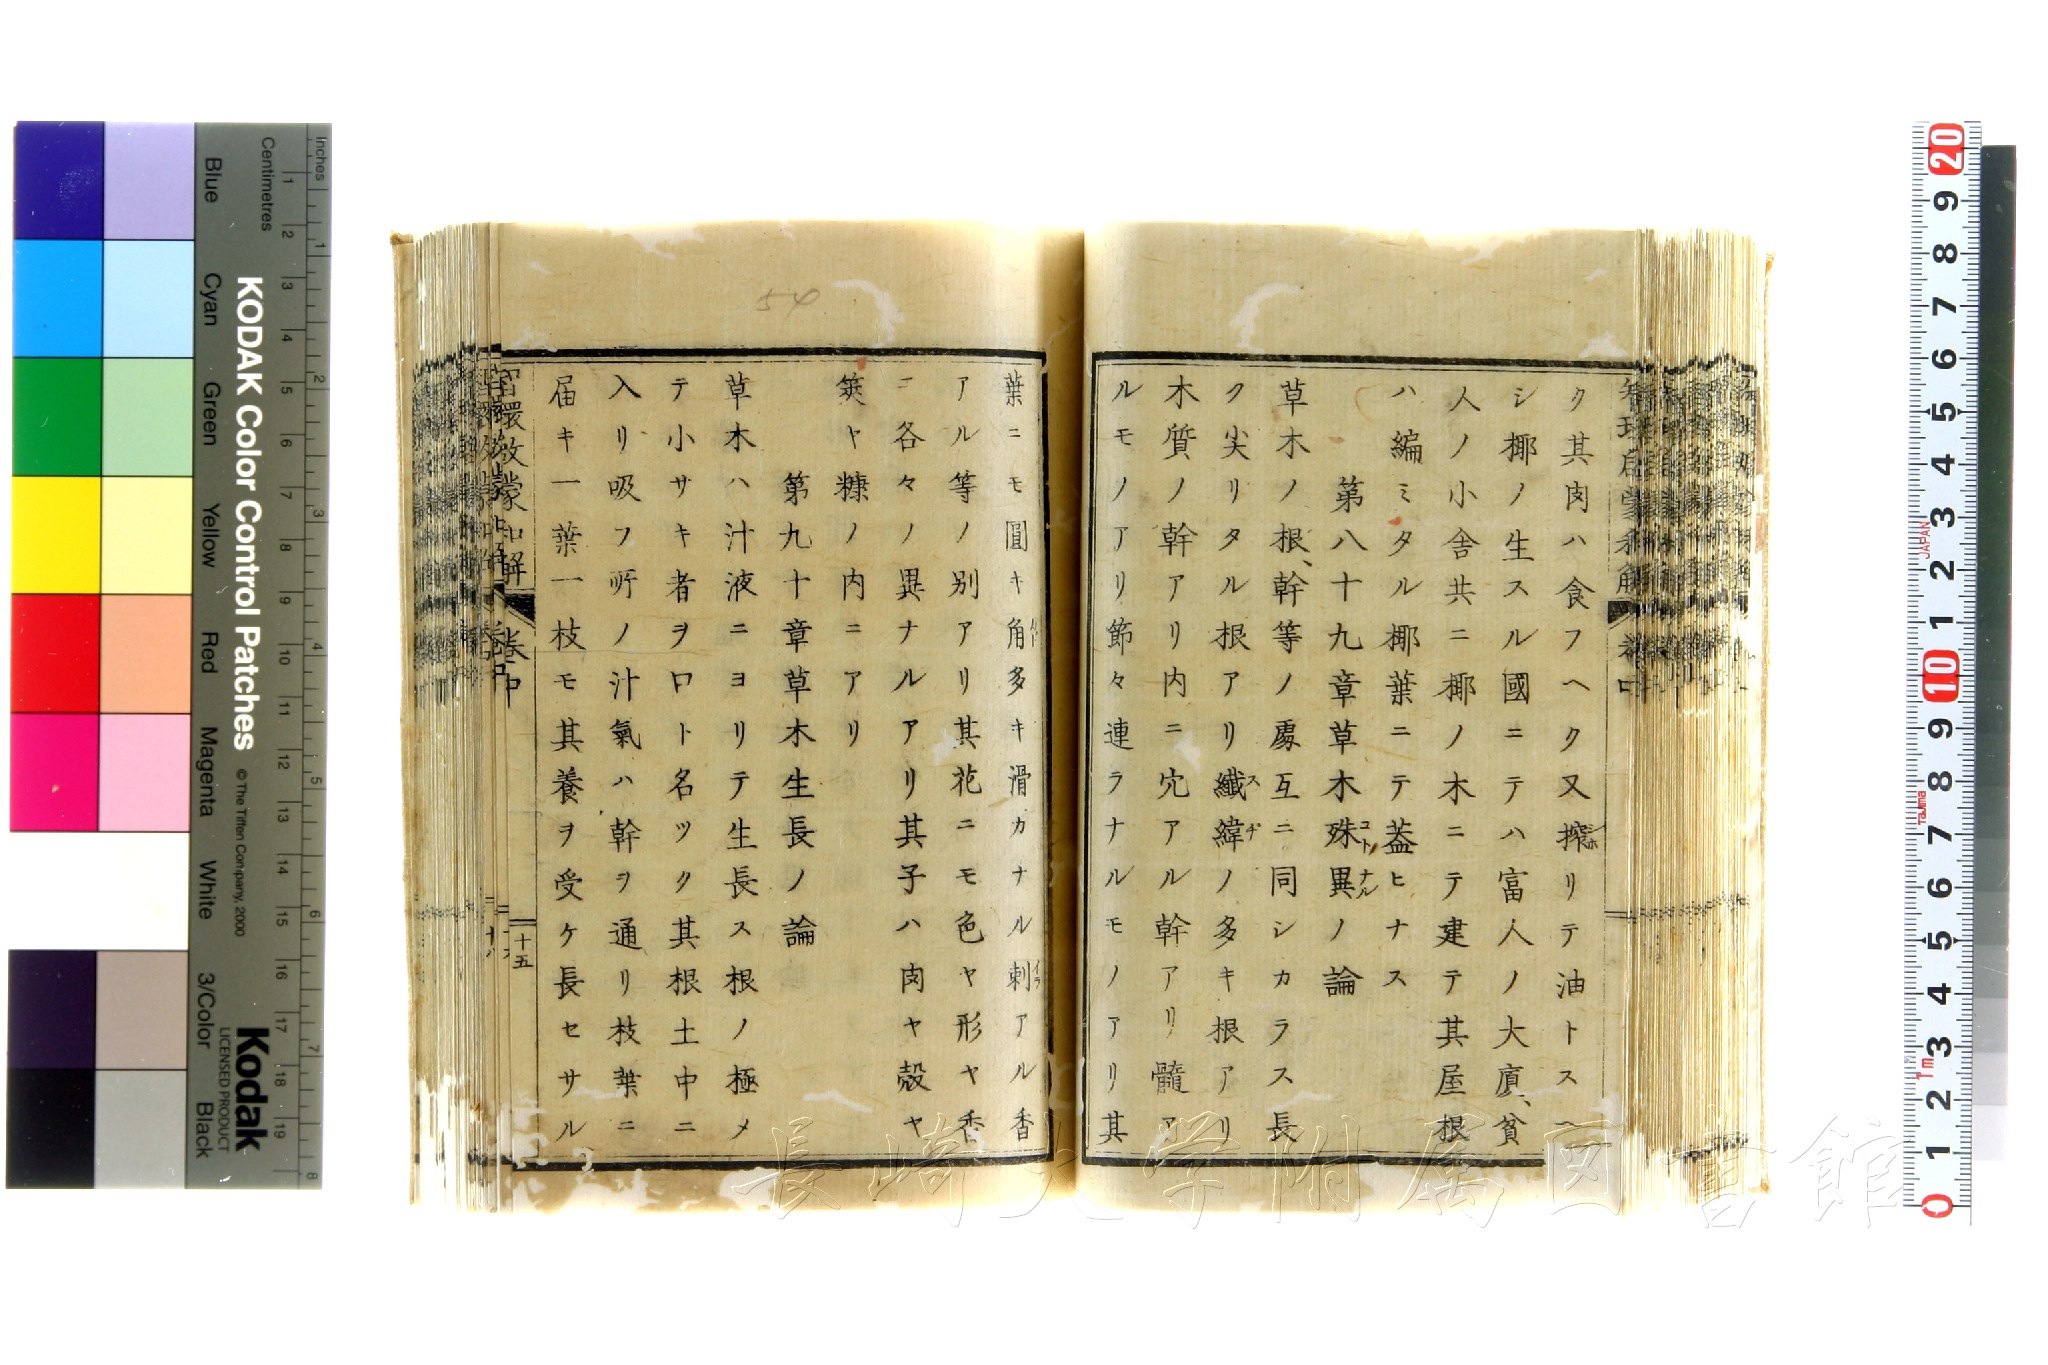 ク其肉ハ食フヘク又搾リテ油トスヘ
シ椰ノ生スル國ニテハ富人ノ大厦、貧
人ノ小舎共ニ椰ノ木ニテ建テ其屋根
ハ編ミタル椰葉ニテ葢ヒナス
第八十九章草木殊異ノ論
コトナル
草木ノ根、幹等ノ處互ニ同シカラス長
ク尖リタル根アリ纖緯ノ多キ根アリ
スヂ
木質ノ幹アリ内ニ穴アル幹アリ髓ア
ルモノアリ節々連ラナルモノアリ其
葉ニモ圓キ角多キ滑カナル刺アル香
イラ
アル等ノ別アリ其花ニモ色ヤ形ヤ香
ニ各々ノ異ナルアリ其子ハ肉ヤ殻ヤ
筴ヤ糠ノ内ニアリ
第九十章草木生長ノ論
草木ハ汁液ニヨリテ生長ス根ノ極メ
テ小サキ者ヲ口ト名ツク其根土中ニ
入リ吸フ所ノ汁氣ハ幹ヲ通リ枝葉ニ
届キ一葉一枝モ其養ヲ受ケ長セサル
啓蒙和解 卷中
十五
54
長崎大学附属図書館
Inches
Centimetres
Blue
Cyan
Green
Yellow
Red
Magenta
White
3/Color
Black
KODAK Color Control Patches
© The Tiffen Company, 2000
Kodak
LICENSED PRODUCT
1 2 3 4 5 6 7 8 9 10 11 12 13 14 15 16 17 18 19
1 2 3 4 5 6 7 8
20 9 8 7 6 5 4 3 2 1 10 9 8 7 6 5 4 3 2 1 0
JAPAN
Tajima
1m